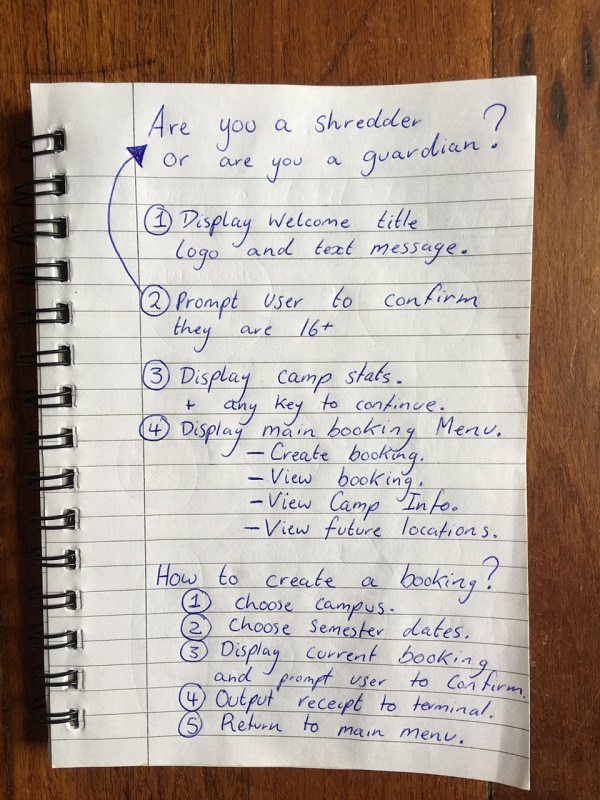 Are you a shredder
or are you a guardian?
① Display Welcome title
logo and text message.
② Prompt user to confirm
they are 16+
③ Display camp stats.
+ any key to continue.
④ Display main booking Menu.
– Create booking.
– View booking.
– View Camp Info.
– View future locations.
How to create a booking?
① Choose campus.
② Choose semester dates.
③ Display current booking
and prompt user to confirm.
④ Output receipt to terminal.
⑤ Return to main menu.